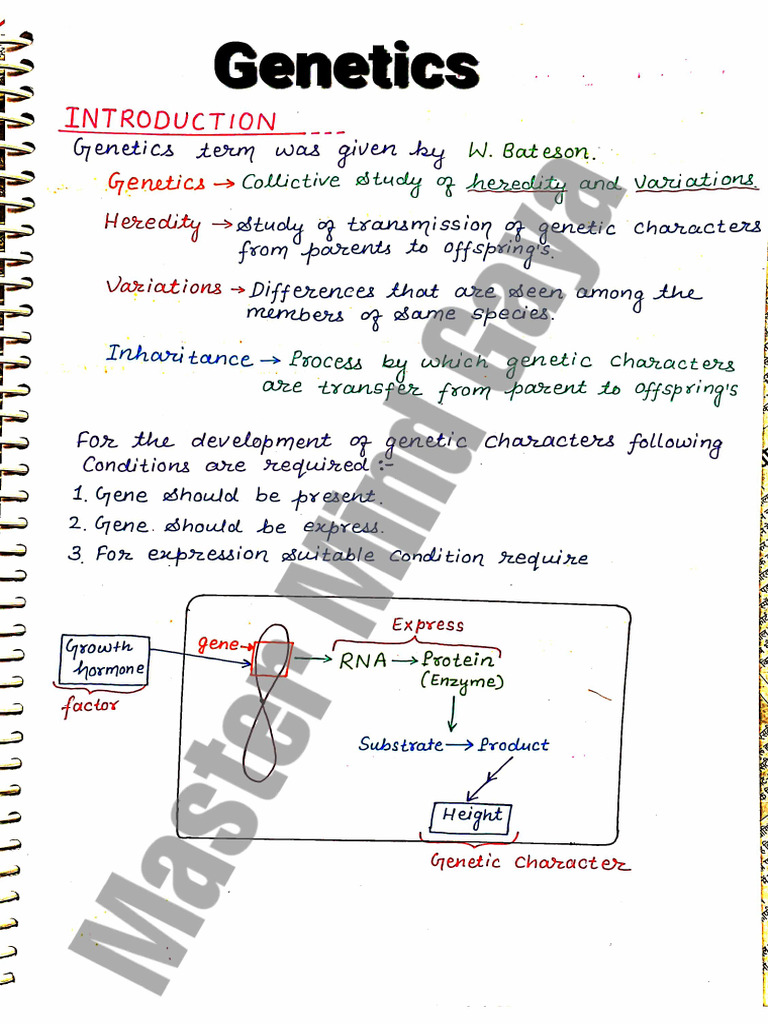 Genetics
INTRODUCTION
Genetics term was given by W. Bateson.
Genetics → Collictive study of heredity and variations.
Heredity → Study of transmission of genetic characters
from parents to offspring's.
Variations → Differences that are seen among the
members of same species.
Inharitance → Process by which genetic characters
are transfer from parent to offspring's
For the development of genetic characters following
Conditions are required :-
1. Gene should be present.
2. Gene should be express.
3. For expression suitable condition require
Express
Growth
hormone
factor
gene →
→ RNA → Protein
(Enzyme)
Substrate → Product
Height
Genetic Character
Master Mind Gaya